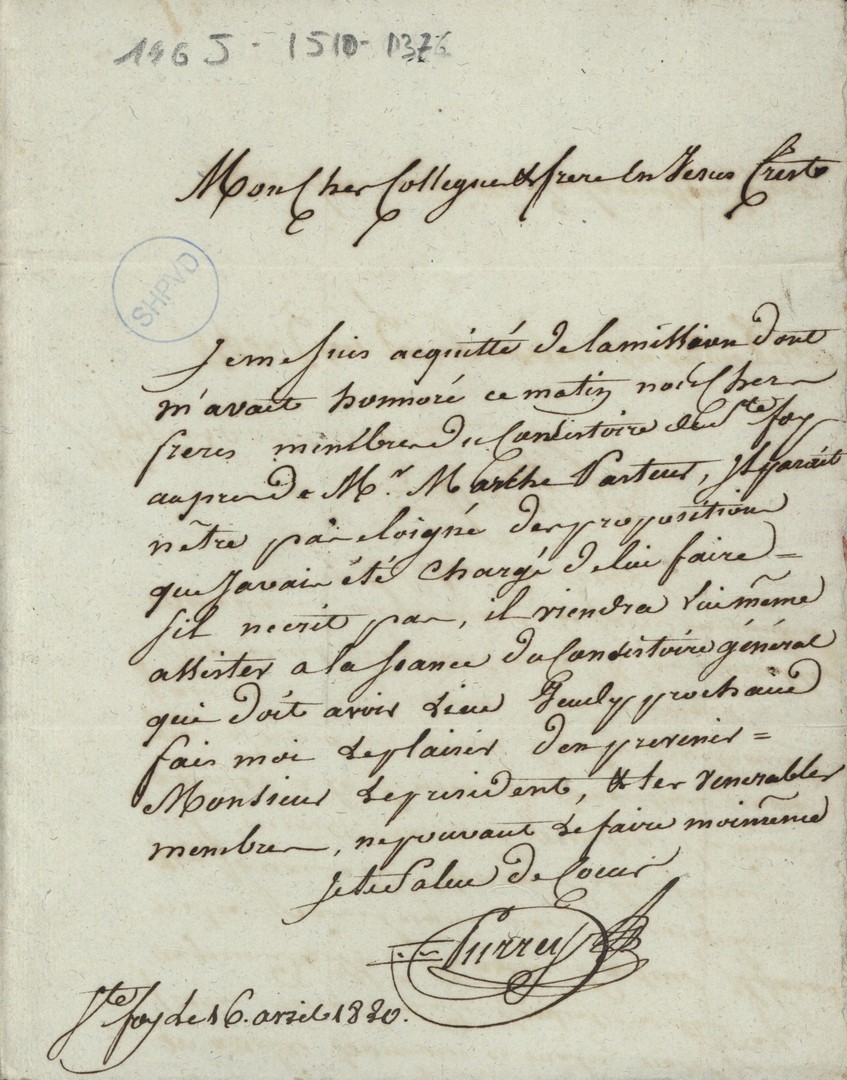 196 J - 1510 - D376
Mon Cher Collegue & frere en Jesus Crist
SHPVD
Je me suis acquitté de la mission dont
m'avait honnoré ce matin nos Cher
freres membre du Consistoire de Ste foy
aupres de Mr. Marthe Pasteur, il parait
nêtre pas eloigné des proposition
que javais été chargé de lui faire =
sil necrit pas, il viendra lui même
assister a la seance du Consistoire général
qui doit avoir lieu Jeudy prochain
fais moi le plaisir den prevenir =
Monsieur le president, & les venerables
membres, ne pouvant le faire moi même
Je te Salue de Coeur
Ste foy le 16. avril 1820.